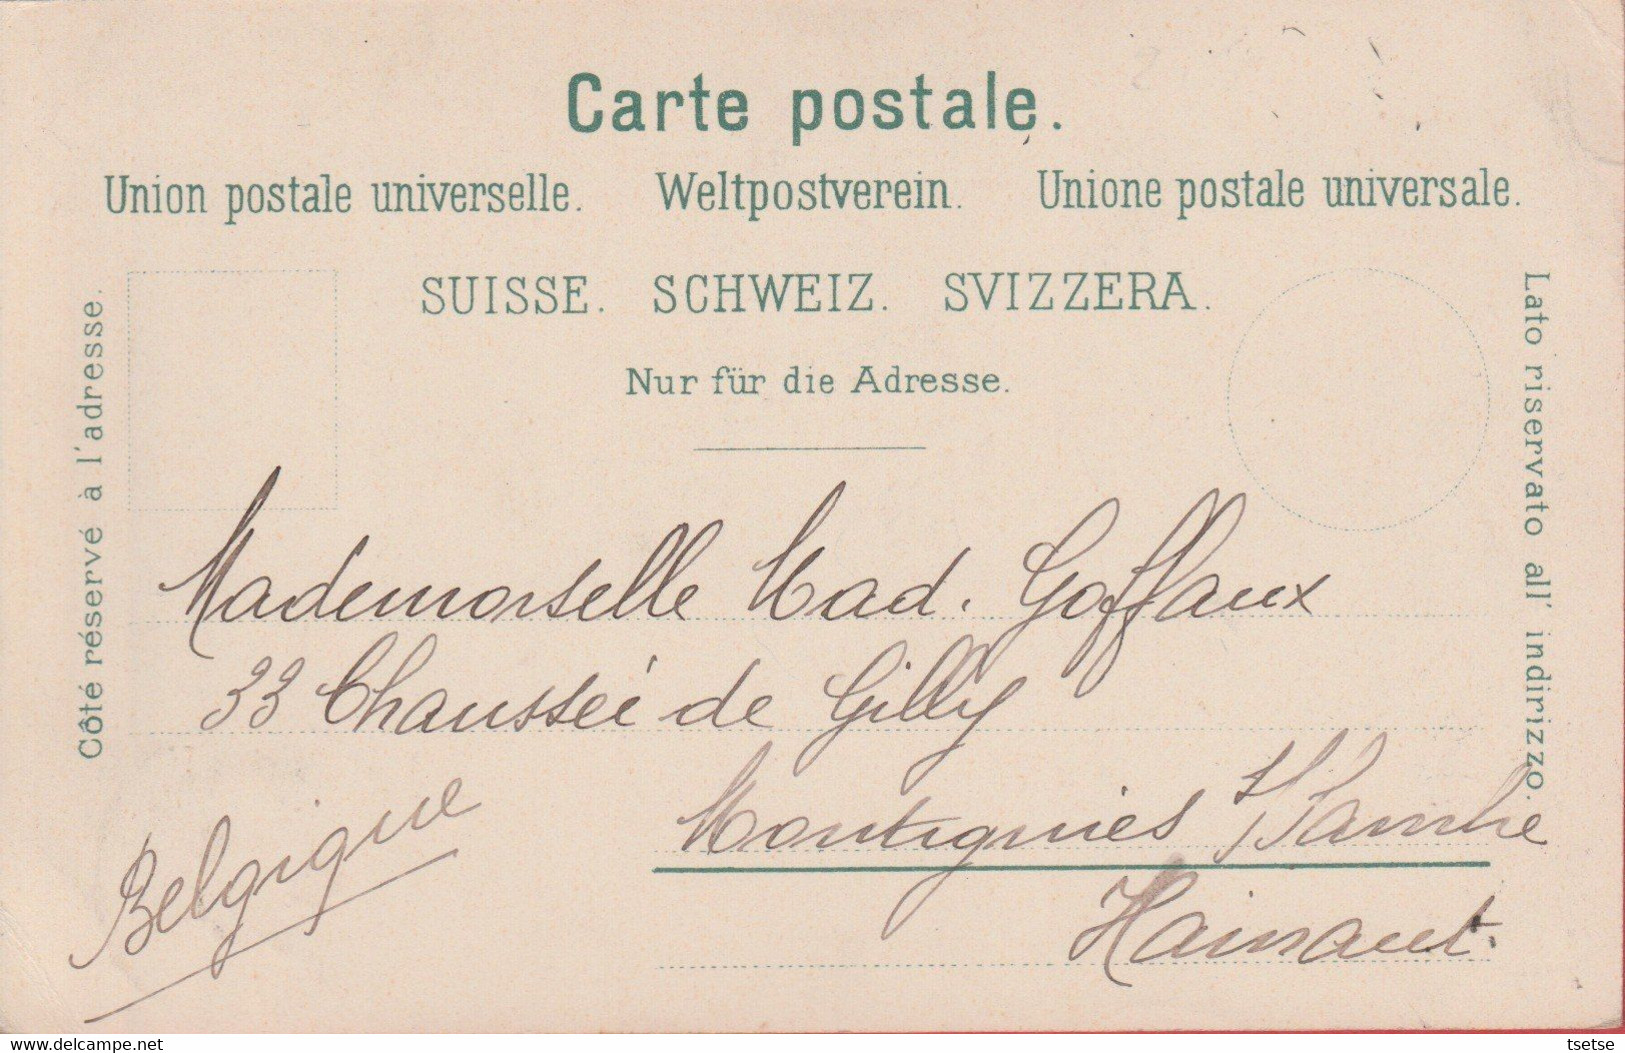 Carte postale.
Union postale universelle. Weltpostverein. Unione postale universale.
SUISSE. SCHWEIZ. SVIZZERA.
Nur für die Adresse.
Côté réservé à l'adresse.
Lato riservato all' indirizzo.
Mademoiselle Mad. Goffaux
33 Chaussée de Gilly
Montignies s/Sambre
Hainaut.
Belgique
www.delcampe.net
tsetse